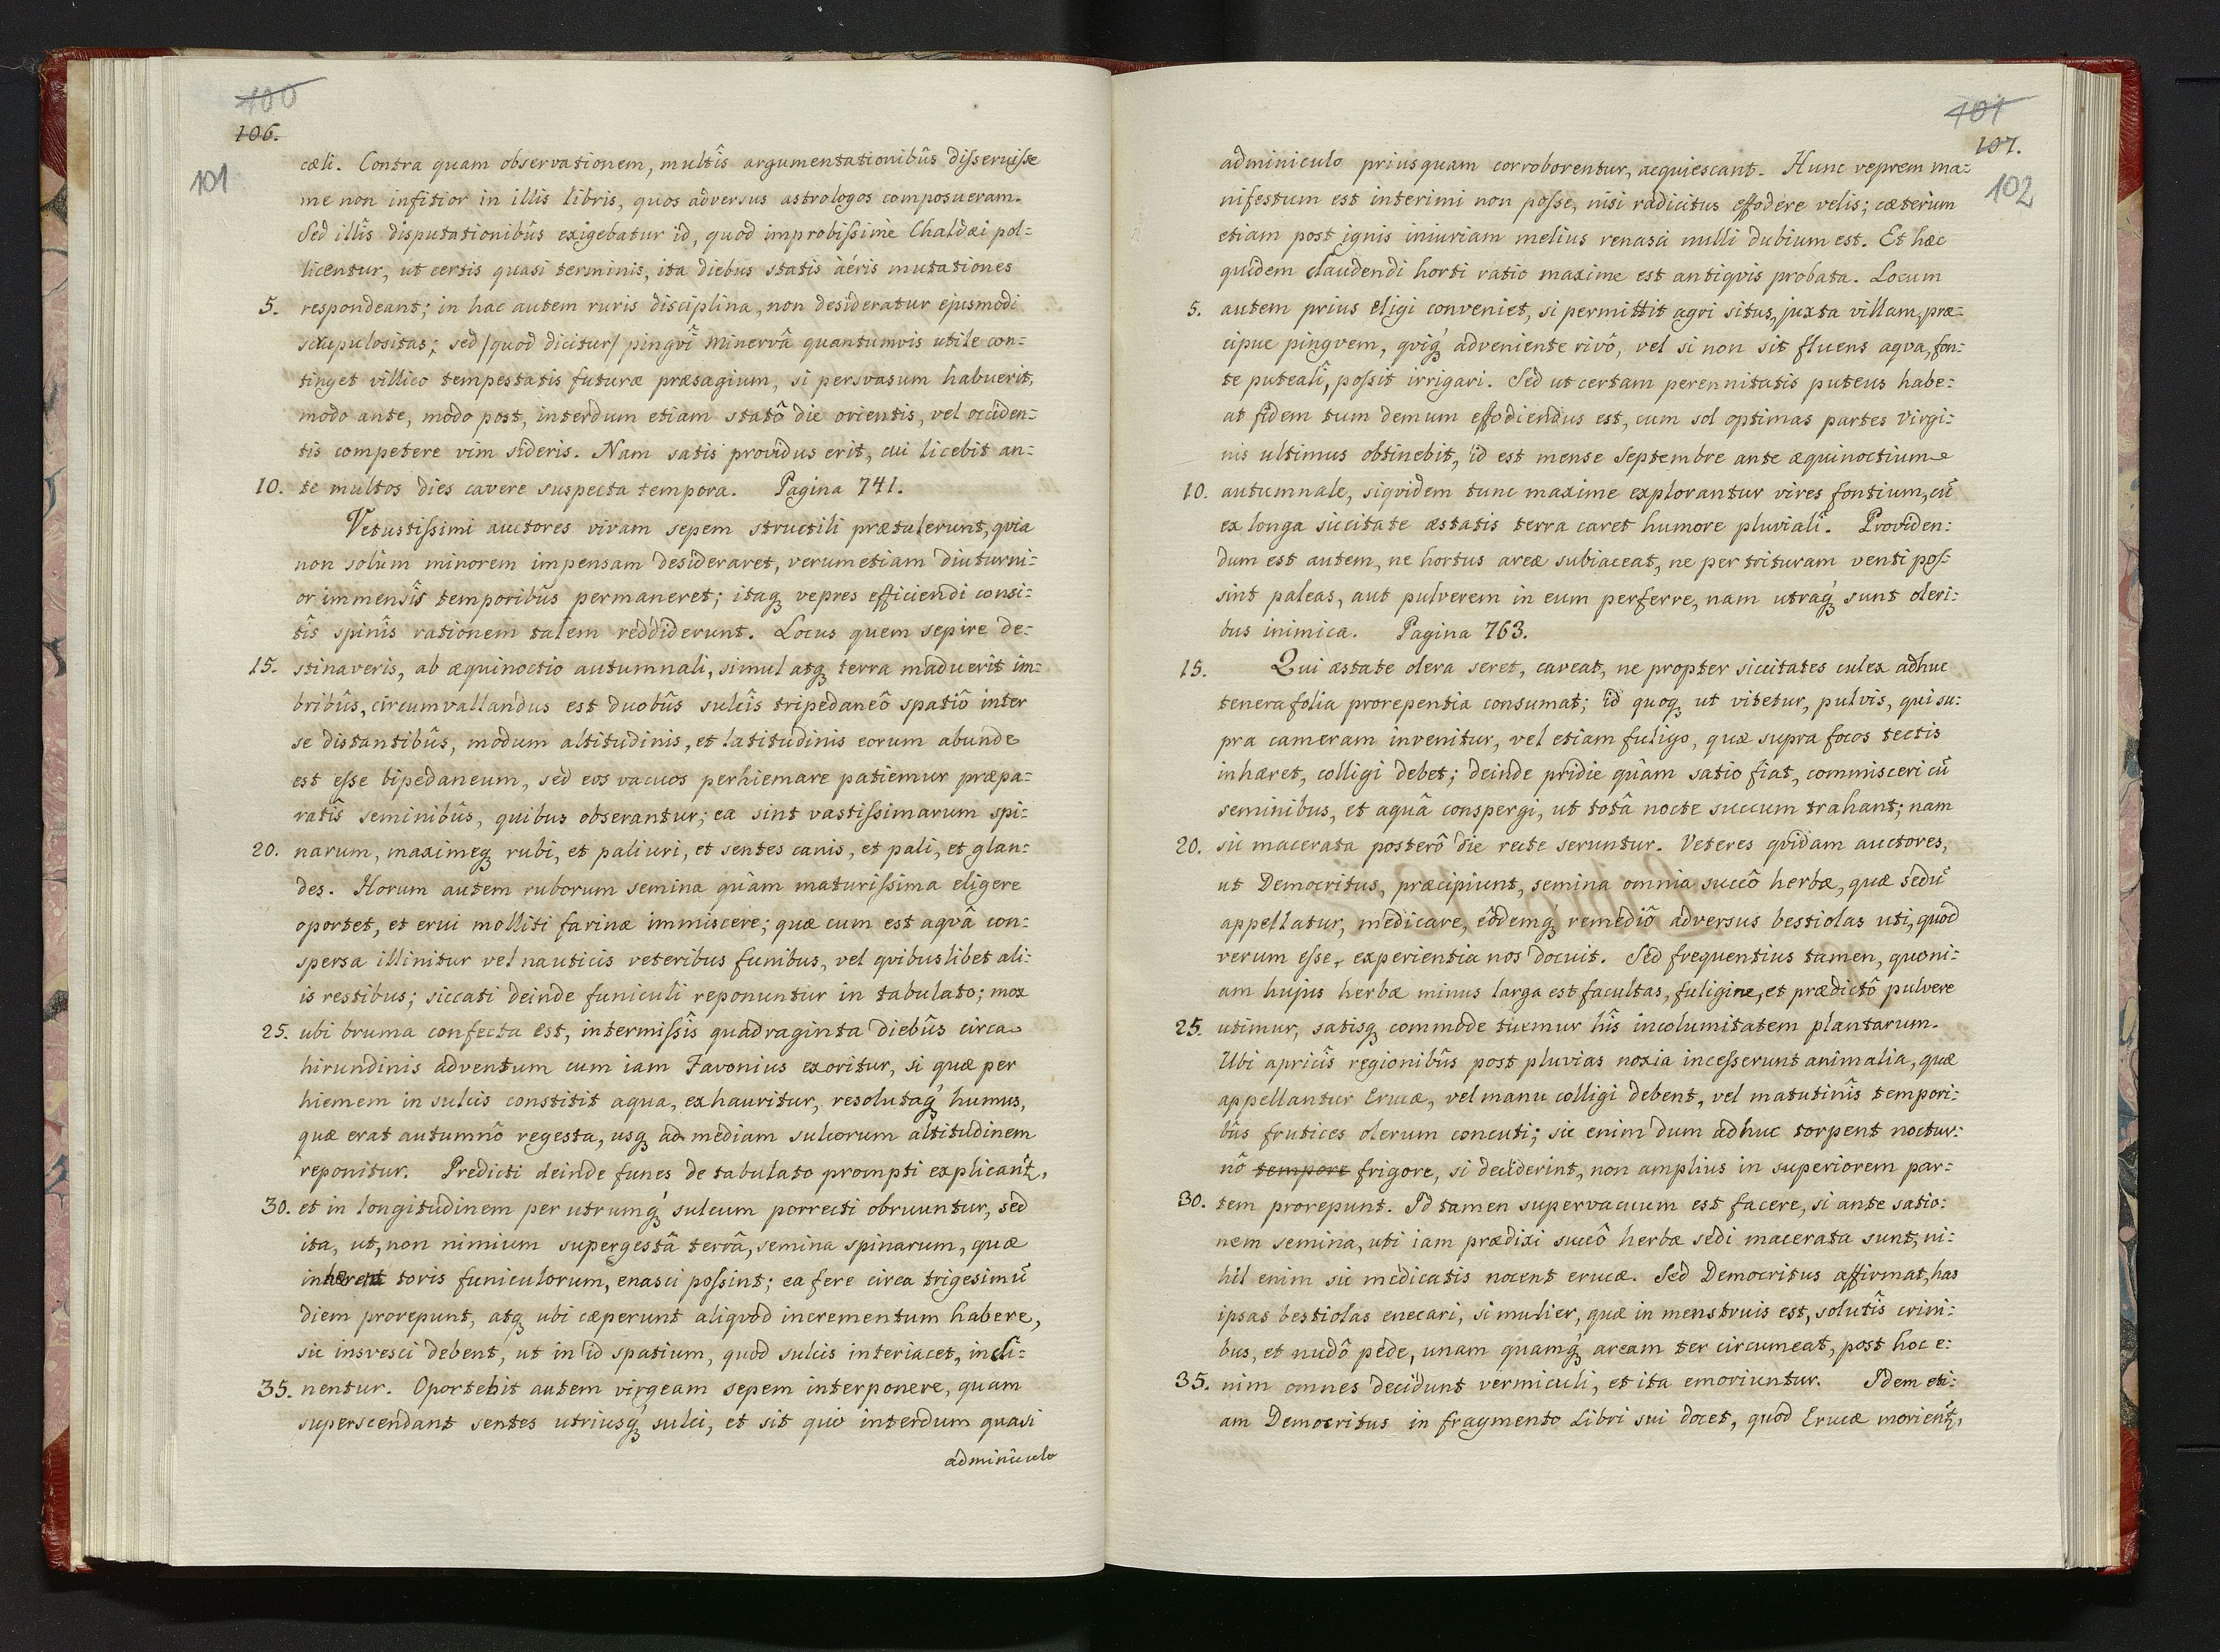 100
106.
101
cæli. Contra quam observationem, multîs argumentationibûs disseruisse
me non infitior in illis libris, quos adversus astrologos composueram.
Sed illîs disputationibûs exigebatur id, quod improbissimè Chaldæi pol=
licentur, ut certis quasi terminis, ita diebus statis àéris mutationes
5. respondeant; in hac autem ruris disciplina, non desideratur ejusmodi
scrupulositas; sed /quod dicitur/ pingvî Minervâ quantumvis utile con=
tinget villico tempestatis futuræ præsagium, si persvasum habuerit,
modo ante, modo post, interdum etiam statô die orientis, vel occiden=
tis competere vim sideris. Nam satis providus erit, cui licebit an=
10. te multos dies cavere suspecta tempora. Pagina 741.
Vetustissimi auctores vivam sepem structili prætulerunt, qvia
non solùm minorem impensam desideraret, verum etiam diuturni=
or immensîs temporibûs permaneret; itaqꝫ vepres efficiendi consi=
tîs spinîs rationem talem reddiderunt. Locus quem sepire de=
15. stinaveris, ab æquinoctio autumnali, simul atqꝫ terra maduerit im=
bribûs, circumvallandus est duobûs sulcîs tripedaneô spatiô inter
se distantibûs, modum altitudinis, et latitudinis eorum abunde
est esse bipedaneum, sed eos vacuos perhiemare patiemur præpa=
ratîs seminibûs, quibus obserantur; ea sint vastissimarum spi=
20. narum, maximeqꝫ rubi, et paliuri, et sentes canis, et pali, et glan=
des. Horum autem ruborum semina quàm maturissima eligere
oportet, et ervi molliti farinæ immiscere; quæ cum est aqvâ con=
spersa illinitur vel nauticis veteribus funibus, vel qvibuslibet ali=
is restibus; siccati deinde funiculi reponuntur in tabulato; mox
25. ubi bruma confecta est, intermissîs quadraginta diebûs circa
hirundinis adventum cum iam Favonius exoritur, si quæ per
hiemem in sulcis constitit aqua, exhauritur, resolutaqꝫ́ humus,
quæ erat autumnô regesta, usqꝫ ad mediam sulcorum altitudinem
reponitur. Predicti deinde funes de tabulato prompti explicant᷑,
30. et in longitudinem per utrumqꝫ́ sulcum porrecti obruuntur, sed
ita, ut, non nimium supergestâ terrâ, semina spinarum, quæ
inhærent toris funiculorum, enasci possint; ea fere circa trigesimū
diem prorepunt, atqꝫ ubi cæperunt aliqvod incrementum habere,
sic insvesci debent, ut in id spatium, quod sulcis interiacet, incli=
35. nentur. Oportebit autem virgeam sepem interponere, quam
superscendant sentes utriusqꝫ́ sulci, et sit quò interdum quasi
adminiculo
101
107.
102
adminiculo priusquam corroborentur, acquiescant. Hunc veprem ma=
nifestum est interimi non posse, nisi radicitus effodere velis; cæterùm
etiam post ignis iniuriam melius renasci nulli dubium est. Et hæc
quidem claudendi horti ratio maxime est antiqvis probata. Locum
5. autem prius eligi conveniet, si permittit agri situs, juxta villam, præ=
cipue pingvem, qviqꝫ́ adveniente rivô, vel si non sit fluens aqva, fon=
te puteali, possit irrigari. Sed ut certam perennitatis puteus habe=
at fidem tum demum effodiendus est, cum sol optimas partes Virgi=
nis ultimus obtinebit, id est mense Septembre ante æquinoctium
10. autumnale, siqvidem tunc maxime explorantur vires fontium, cū
ex longa siccitate æstatis terra caret humore pluvialî. Providen=
dum est autem, ne hortus areæ subiaceat, ne per trituram venti pos=
sint paleas, aut pulverem in eum perferre, nam utraqꝫ́ sunt oleri=
bus inimica. Pagina 763.
15. Qui æstate olera seret, caveat, ne propter siccitates culex adhuc
tenera folia prorepentia consumat; id quoqꝫ ut vitetur, pulvis, qui su=
pra cameram invenitur, vel etiam fuligo, quæ supra focos tectis
inhæret, colligi debet; deinde pridie quàm satio fiat, commisceri cū
seminibus, et aquâ conspergi, ut totâ nocte succum trahant; nam
20. sic macerata posterô die recte seruntur. Veteres qvidam auctores,
ut Democritus, præcipiunt, semina omnia succô herbæ, quæ sedū
appellatur, medicare, eôdemqꝫ́ remediô adversus bestiolas uti, quod
verum esse, experientia nos docuit. Sed frequentius tamen, quoni=
am hujus herbæ minus larga est facultas, fuligine, et prædictô pulvere
25. utimur, satisqꝫ commode tuemur hîs incolumitatem plantarum.
Ubi apricîs regionibûs post pluvias noxia incesserunt animalia, quæ
appellantur Erucæ, vel manu colligi debent, vel matutinîs tempori=
bûs frutices olerum concuti; sic enim dum adhuc torpent noctur=
nô tempore frigore, si deciderint, non amplius in superiorem par=
30. tem prorepunt. Id tamen supervacuum est facere, si ante satio=
nem semina, uti iam prædixi succô herbæ sedi macerata sunt, ni=
hil enim sic medicatis nocent erucæ. Sed Democritus affirmat, has
ipsas bestiolas enecari, si mulier, quæ in menstruis est, solutîs crini=
bus, et nudô pede, unam quamqꝫ́ aream ter circumeat, post hoc e=
35. nim omnes decidunt vermiculi, et ita emoriuntur. Idem eti=
am Democritus in fragmento Libri sui docet, quod Erucæ morient᷑,